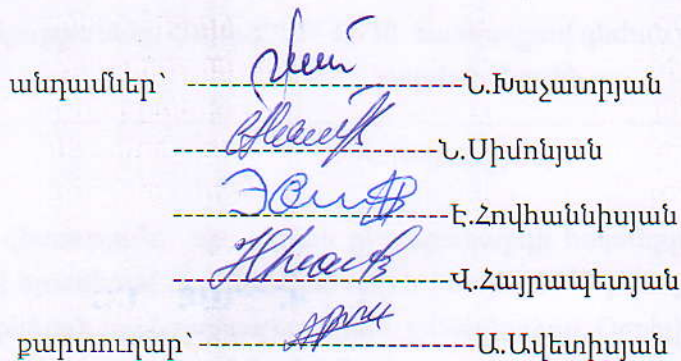 անդամներ՝ ------------------------------Ն.Խաչատրյան
------------------------------Ն.Սիմոնյան
------------------------------Է.Հովհաննիսյան
------------------------------Վ.Հայրապետյան
քարտուղար ------------------------------Ա.Ավետիսյան